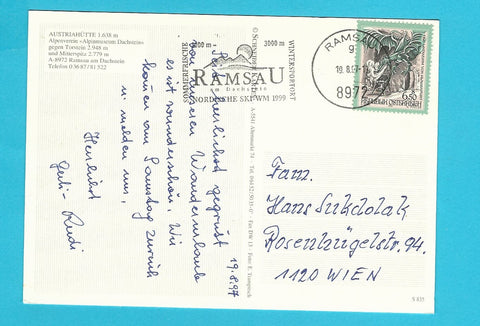 AUSTRIAHÜTTE 1.638 m
Alpenverein «Alpinmuseum Dachstein»
gegen Torstein 2.948 m
und Mitterspitz 2.779 m
A-8972 Ramsau am Dachstein
Telefon 03687/81 522
3000 m
WINTERSPORTORT
RAMSAU
am Dachstein
NORDISCHE SKI-WM 1999
RAMSAU
8972
6.50
REPUBLIK ÖSTERREICH
19.8.97
Seid herzlichst gegrüßt
von unserem Wanderurlaub
es ist wunderschön. Wir
kommen am Samstag zurück
u. melden uns.
Herzlichst
Rudi
Fam.
Hans Sukdolak
Rosenhügelstr. 94.
1120 WIEN
S 835